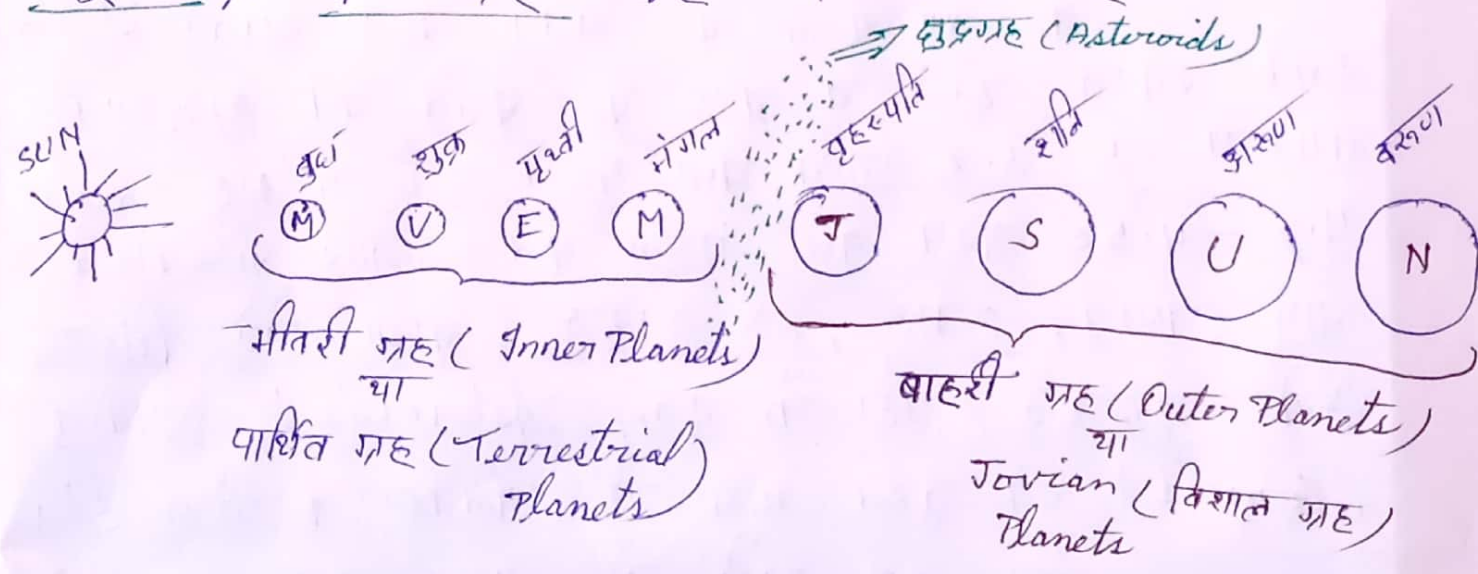 क्षुद्रग्रह (Asteroids)
SUN
बुध शुक्र पृथ्वी मंगल वृहस्पति शनि अरुण वरुण
M V E M J S U N
भीतरी ग्रह ( Inner Planets)
या
पार्थिव ग्रह (Terrestrial
Planets)
बाहरी ग्रह (Outer Planets)
या
Jovian (विशाल ग्रह)
Planets